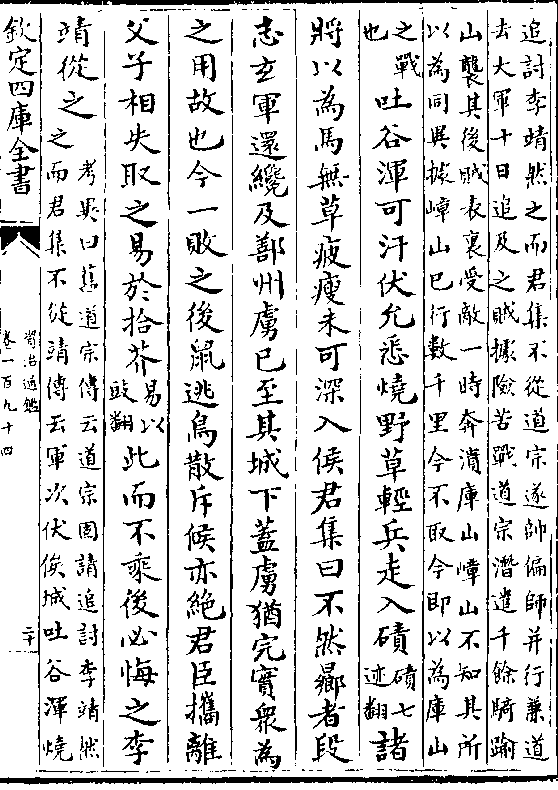 追討李靖然之而君集不從道宗遂帥偏師并行兼道
去大軍十日追及之賊據險苦戰道宗潛遣千餘騎踰
山襲其後賊表裏受敵一時奔潰庫山嶂山不知其所
以為同異據嶂山已行數千里今不取今即以為庫山
之戰
也
吐谷渾可汗伏允悉燒野草輕兵走入磧
磧七
迹翻
諸
將以為馬無草疲瘦未可深入侯君集曰不然曏者段
志玄軍還纔及鄯州虜已至其城下蓋虜猶完實衆為
之用故也今一敗之後鼠逃鳥散斥候亦絶君臣攜離
父子相失取之易於拾芥
易以
豉翻
此而不乘後必悔之李
靖從之
考異曰舊道宗傳云道宗固請追討李靖然
之而君集不從靖傳云軍次伏俟城吐谷渾燒
欽定四庫全書
資治通鑑
卷一百九十四
二十